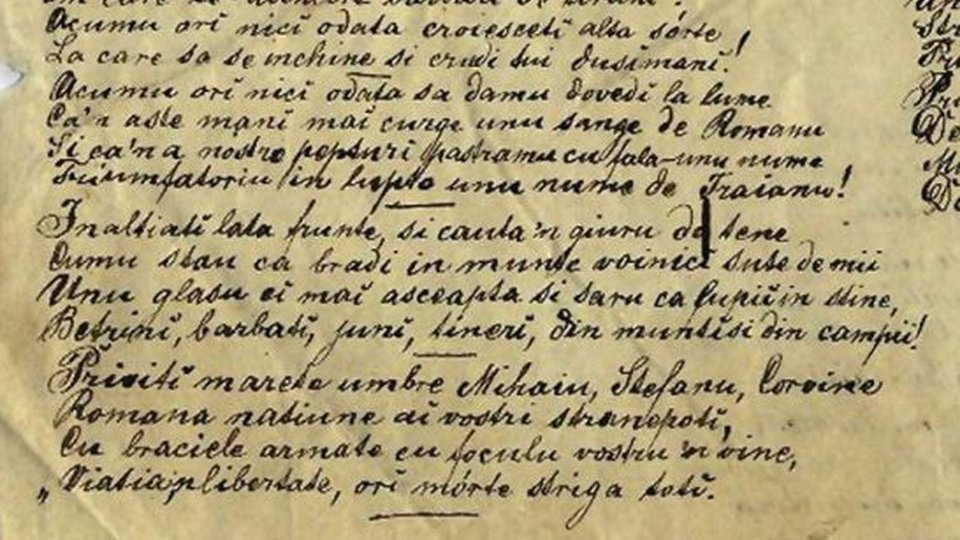 Acumu ori nici odata croiesceti alta sórte!
La care sa se inchine si crudi tui dusimani!
Acumu ori nici odata sa damu dovedi la lume
Ca'n aste mani mai curge unu sange de Romanu
Si ca'n a nostre pepturi pastramu cu fala-unu nume
Triumfatoriu in lupta unu nume de Traianu!
Inaltiati lata frunte, si cauta 'n giuru de tene
Cumu stau ca bradi in munte voinici sute de mii
Unu glasu ei mai asceapta si saru ca lupii in stine,
Betrini, barbati, juni, tineri, din munti si din campii!
Priviti marete umbre Mihaiu, Stefanu, Corvine
Romana natiune ai vostri stranepoti,
Cu braciele armate cu foculu vostru 'n vine,
„Viatia'n libertate, ori mórte striga toti.